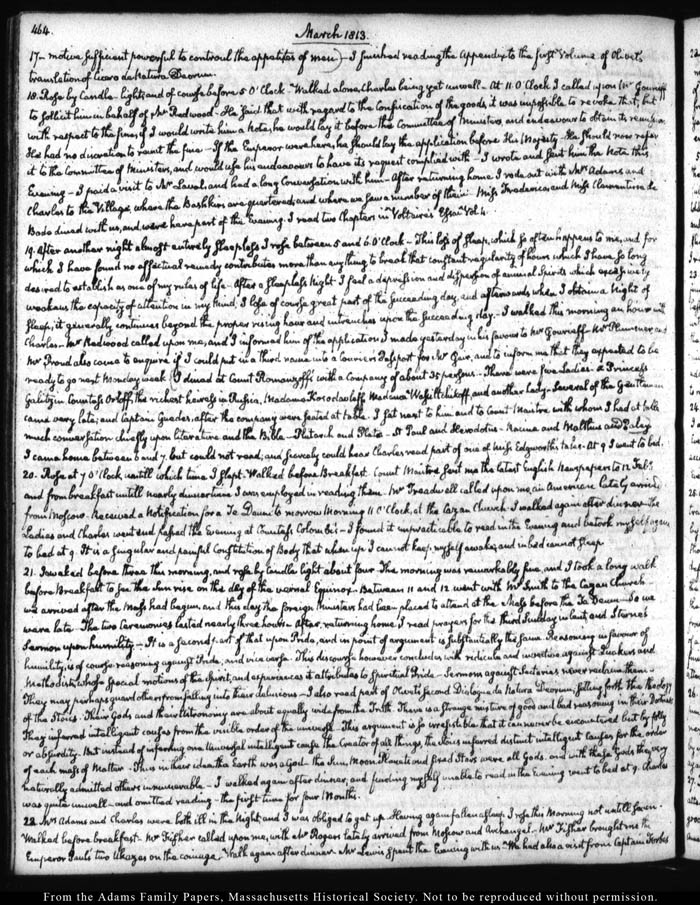 464.
March 1813.
17_ motive sufficient powerful to controul the appetites of man)_ I finished reading the Appendix to the first Volume of Olivet's
translation of Cicero de Natura Deorum.
18. Rose by Candle-light, and of course before 5 O'Clock_ Walked alone, Charles being yet unwell_ At 11 O'Clock I called upon Mr Gourieff
to sollicit him in behalf of Mr Redwood_ He said that with regard to the confiscation of the goods, it was impossible to revoke that, but
with respect to the fines, if I would write him a Note, he would lay it before the Committee of Ministers, and endeavour to obtain its remission
He had no discretion to remit the fine_ If the Emperor were here, he should lay the application before His Majesty_ He should now refer
it to the Committee of Ministers, and would use his endeavours to have its request complied with_ I wrote and sent him the Note this
Evening_ I paid a visit to Mr Laval, and had a long Conversation with him_ After returning home, I rode out with Mrs Adams and
Charles to the Village, where the Bashkirs are quartered, and where we saw a number of them_ Miss Frederica, and Miss Clementina de
Bode dined with us, and were here part of the Evening. I read two Chapters in Voltaire's Essai Vol. 4.
19. After another night almost entirely sleepless I rose between 5 and 6 O'Clock_ This loss of sleep, which so often happens to me, and for
which I have found no effectual remedy contributes more than any thing to break that constant regularity of hours which I have so long
desired to establish as one of my rules of life_ After a sleepless Night I feel a depression and dispersion of animal Spirits which excessively
weakens the capacity of attention in my mind, I lose of course great part of the succeeding day, and afterwards when I obtain a Night of
sleep, it generally continues beyond the proper rising hour and intrenches upon the succeeding day_ I walked this morning an hour with
Charles_ Mr Redwood called upon me, and I informed him of the application I made yesterday in his favour to Mr Gourieff_ Mr Plummer and
Mr Proud also came to enquire if I could put in a third name into a Courier's Passport for Mr Guir, and to inform me that they expected to be
ready to go next Monday week_ I dined at Count Romanzoff's with a company of about 35 persons_ There were few Ladies_ a Princess
Galitzin Countess Orloff, the richest heiress in Russia, Madame Korsdavleff Madame Wassiltchikoff, and another lady_ Several of the Gentlemen
came very late; and Captain Guedes, after the company were seated at table. I sat next to him and to Count Maistre, with whom I had at table
much conversation chiefly upon literature and the Bible_ Plutarch and Plato_ St Paul and Herodotus_ Racine and Malthus and Paley
I came home between 6 and 7. but could not read; and scarcely could hear Charles read part of one of Miss Edgeworth's tales_ At 9 I went to bed.
20. Rose at 7 O'Clock, untill which time I slept_ Walked before Breakfast. Count Maistre sent me the latest English Newspapers to 12 Feby
and from breakfast untill nearly dinner time I was employed in reading them_ Mr Treadwell called upon me, an American lately arrived
from Moscow_ Received a Notification for a Te Deum to morrow Morning 11 O'Clock, at the Cazan Church_ I walked again after dinner_ the
Ladies and Charles went and passed the Evening at Countess Colombi's_ I found it impracticable to read in the Evening and betook myself again
to bed at 9. It is a singular and painful Constitution of Body that when up I cannot keep myself awake; and in bed cannot sleep.
21. I waked before three this morning, and rose by Candle light about four. The morning was remarkably fine, and I took a long walk
before Breakfast to see the Sun rise on the day of the vernal Equinox_ Between 11 and 12 went with Mr Smith to the Cazan Church
we arrived after the Mass had begun, and this day the foreign Ministers had been placed to attend at the Mass before the Te Deum_ So we
were late_ The two Ceremonies lasted nearly three hours_ After returning home, I read prayers for the third Sunday in Lent, and Sterne's
Sermon upon humility_ It is a second part of that upon Pride, and in point of argument is substantially the same. Reasoning in favour of
humility, is of course reasoning against Pride, and vice versa_ This discourse however concludes with ridicule and invective against Quakers and
Methodists, whose special motions of the Spirit, and experiences it attributes to Spiritual Pride_ Sermons against Sectaries never reclaim them_
They may perhaps guard others from falling into their delusions_ I also read part of Olivet's second Dialogue de Natura Deorum, setting forth the theology
of the Stoics_ Their Gods and their Astronomy are about equally wide from the Truth_ There is a strange mixture of good and bad reasoning in their Doctrine
They inferred intelligent causes from the visible order of the universe_ This argument is so irresistible that it can never be encountered but by folly
or absurdity_ But instead of inferring one Universal intelligent cause, the Creator of all things, the Stoics inferred distinct intelligent causes for the order
of each mass of Matter_ Thus in their idea the Earth was a God_ the Sun, Moon Planets and fixed Stars were all Gods_ and with these Gods they very
naturally admitted others innumerable_ I walked again after dinner, and finding myself unable to read in the Evening went to bed at 9. Charles
was quite unwell_ and omitted reading_ the first time for four Months.
22. Mrs Adams and Charles were both ill in the Night, and I was obliged to get up_ Having again fallen asleep I rose this Morning not untill seven.
Walked before breakfast_ Mr Fisher called upon me, with Mr Rogers lately arrived from Moscow and Archangel_ Mr Fisher brought me the
Emperor Paul's two Ukazes on the coinage_ Walk again after dinner_ Mr Lewis spent the Evening with us_ We had also a visit from Captain Forbes
From the Adams Family Papers, Massachusetts Historical Society. Not to be reproduced without permission.